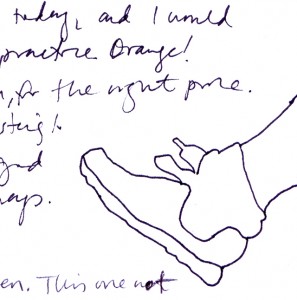 today, and I would
practice Orange!
, for the right price.
sting!
and
ways.
en. This one not